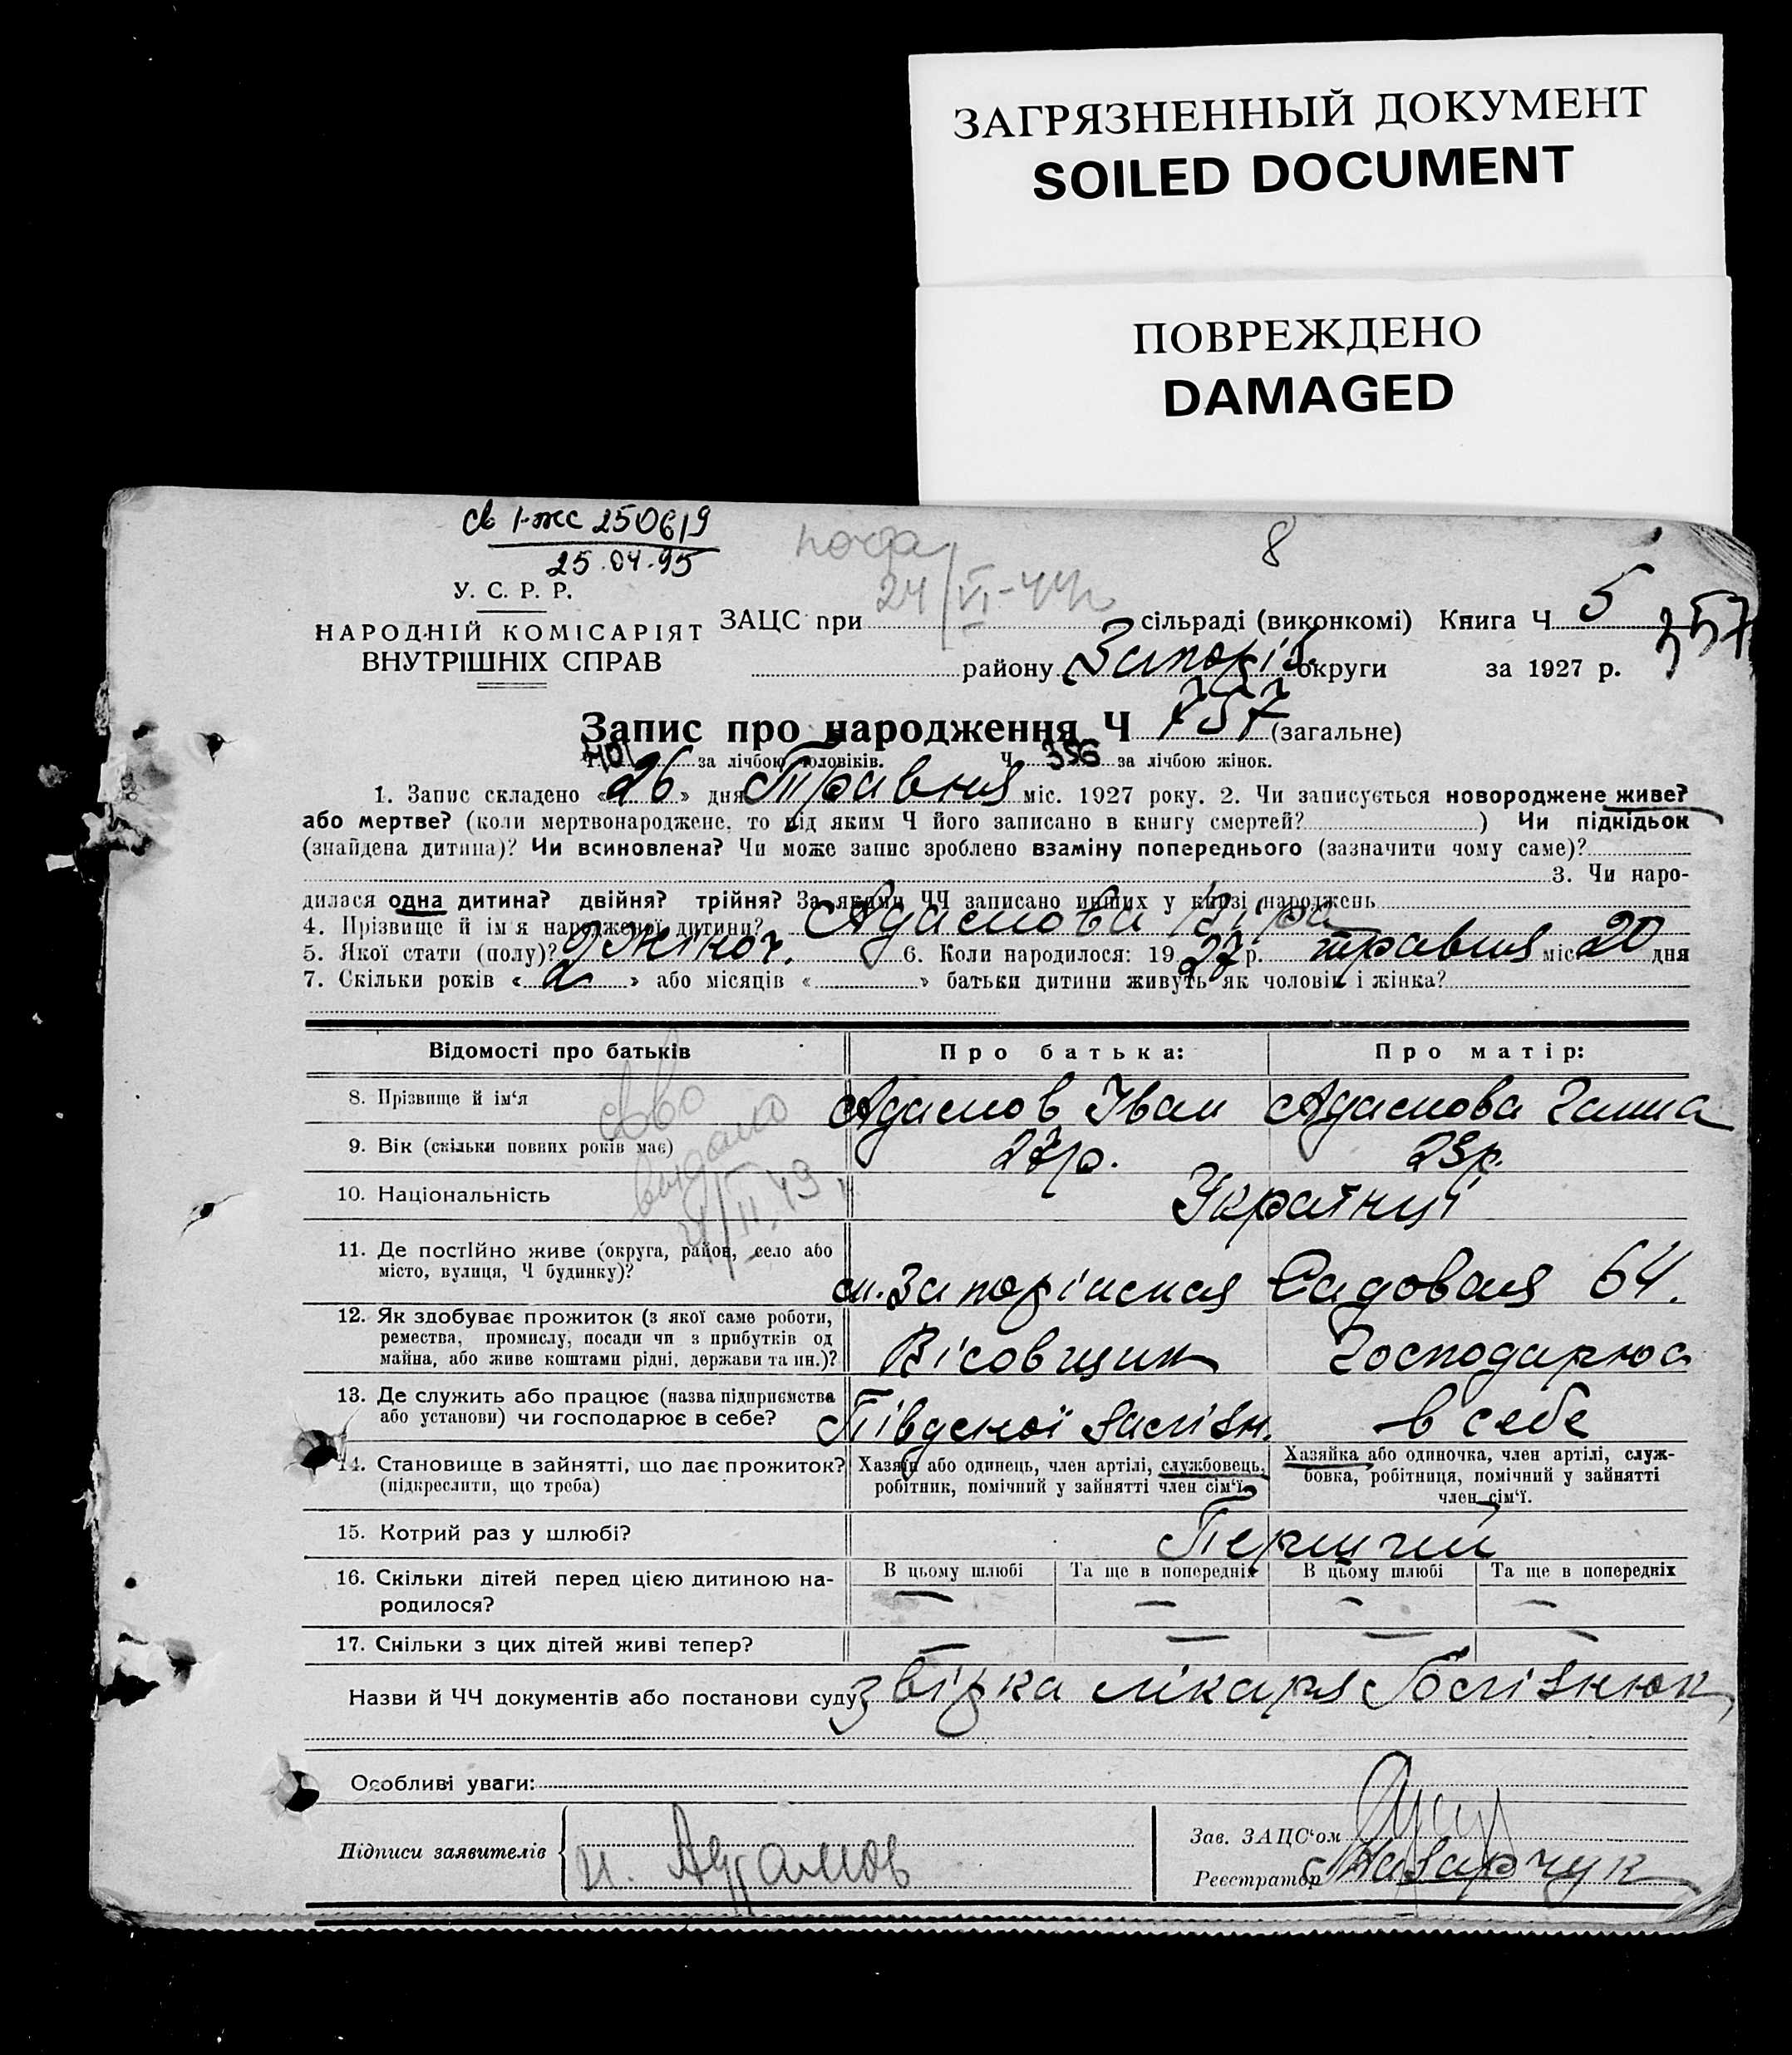 ЗАГРЯЗНЕННЫЙ ДОКУМЕНТ
SOILED DOCUMENT
ПОВРЕЖДЕНО
DAMAGED
св 1-жс 250619
25.04.95
24/VI-44р
8
У. С. Р. Р.
НАРОДНІЙ КОМІСАРІЯТ
ВНУТРІШНІХ СПРАВ
ЗАЦС при сільраді (виконкомі) Книга Ч 5
357
району Запоріз. округи за 1927 р.
Запис про народження Ч 757 (загальне)
Ч 401 за лічбою чоловіків. Ч 356 за лічбою жінок.
1. Запис складено «26» дня Травня міс. 1927 року. 2. Чи записується новороджене живе?
або мертве? (коли мертвонароджене, то під яким Ч його записано в книгу смертей? ) Чи підкідьок
(знайдена дитина)? Чи всиновлена? Чи може запис зроблено взаміну попереднього (зазначити чому саме)?
3. Чи наро-
дилася одна дитина? двійня? трійня? За якими ЧЧ записано инших у книзі народжень
4. Прізвище й ім'я народженої дитини? Адамова Віра
5. Якої стати (полу)? жіноч. 6. Коли народилося: 1927 р. травня міс 20 дня
7. Скільки років «2» або місяців « » батьки дитини живуть як чоловік і жінка?
Відомості про батьків
Про батька:
Про матір:
8. Прізвище й ім'я
Адамов Іван
Адамова Ганна
9. Вік (скільки повних років має)
27р.
23р.
10. Національність
Українці
11. Де постійно живе (округа, район, село або
місто, вулиця, Ч будинку)?
м. Запоріжжя Садовая 64.
12. Як здобуває прожиток (з якої саме роботи,
ремества, промислу, посади чи з прибутків од
майна, або живе коштами рідні, держави та ин.)?
Вісовщик
Господарює
13. Де служить або працює (назва підприємства
або установи) чи господарює в себе?
Південої залізн.
в себе
14. Становище в зайнятті, що дає прожиток?
(підкреслити, що треба)
Хазяїн або одинець, член артілі, службовець,
робітник, помічний у зайнятті член сім'ї.
Хазяйка або одиночка, член артілі, служ-
бовка, робітниця, помічний у зайнятті
член сім'ї.
15. Котрий раз у шлюбі?
Перший
16. Скільки дітей перед цією дитиною на-
родилося?
В цьому шлюбі
Та ще в попередніх
В цьому шлюбі
Та ще в попередніх
— — — —
17. Скільки з цих дітей живі тепер?
— — — —
св во
видано
II.49
Назви й ЧЧ документів або постанови суду звідка лікаря
Особливі уваги:
Підписи заявителів
И. Адамов
Зав. ЗАЦС'ом
Реєстратор Назарчук